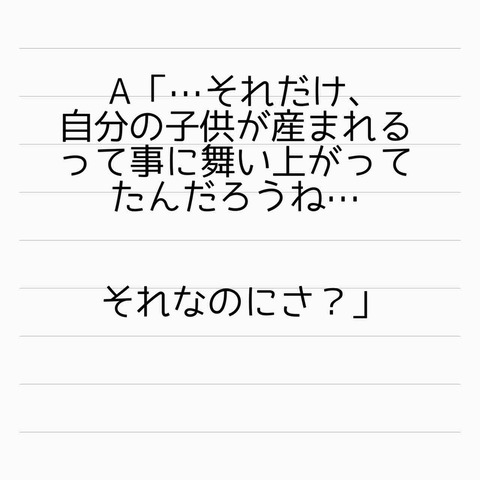 A「…それだけ、
自分の子供が産まれる
って事に舞い上がって
たんだろうね…
それなのにさ？」